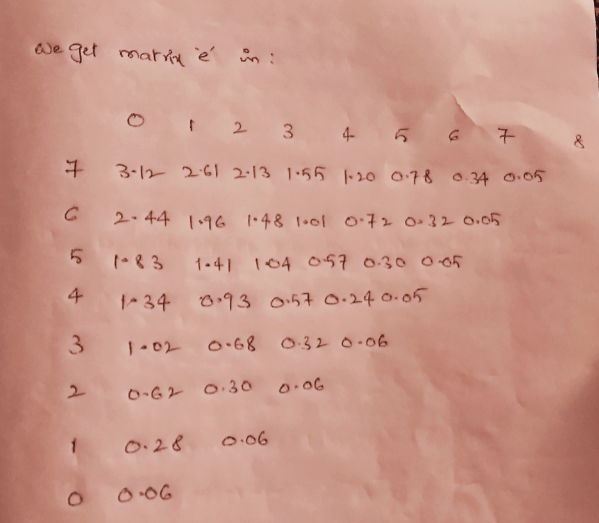 we get matrix 'e' in:
0 1 2 3 4 5 6 7 8
7 3.12 2.61 2.13 1.55 1.20 0.78 0.34 0.05
6 2.44 1.96 1.48 1.01 0.72 0.32 0.05
5 1.83 1.41 1.04 0.57 0.30 0.05
4 1.34 0.93 0.57 0.24 0.05
3 1.02 0.68 0.32 0.06
2 0.62 0.30 0.06
1 0.28 0.06
0 0.06